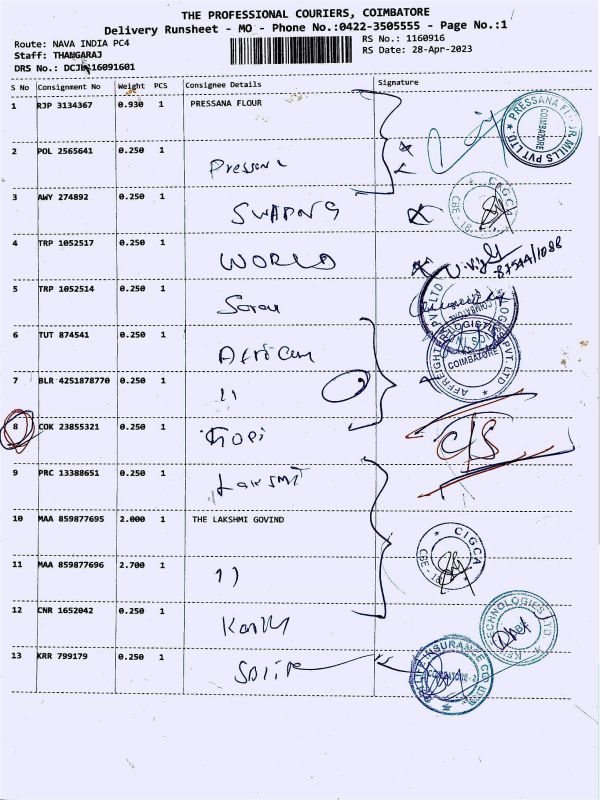 THE PROFESSIONAL COURIERS, COIMBATORE
Delivery Runsheet - MO - Phone No.:0422-3505555 - Page No.:1
Route: NAVA INDIA PC4 RS No.: 1160916
Staff: THANGARAJ RS Date: 28-Apr-2023
DRS No.: 16091601
S No Consignment No Weight PCS Consignee Details Signature
1 RJP 3134367 0.930 1 PRESSANA FLOUR
PRESSANA MILLS PVT LTD COIMBATORE
2 POL 2565641 0.250 1
3 AWY 274892 0.250 1 SWAPNA
CIGCA CBE
4 TRP 1052517 0.250 1 WORLD
5 TRP 1052514 0.250 1
6 TUT 874541 0.250 1
AFFREIGHTER LOGISTICS PVT. LTD COIMBATORE
7 BLR 4251878770 0.250 1 ''
8 COK 23855321 0.250 1 Gopi
C/S
9 PRC 13388651 0.250 1
10 MAA 859877695 2.000 1 THE LAKSHMI GOVIND
CIGCA CBE
11 MAA 859877696 2.700 1 ''
12 CNR 1652042 0.250 1
TECHNOLOGIES LTD
13 KRR 799179 0.250 1
INSURANCE CO